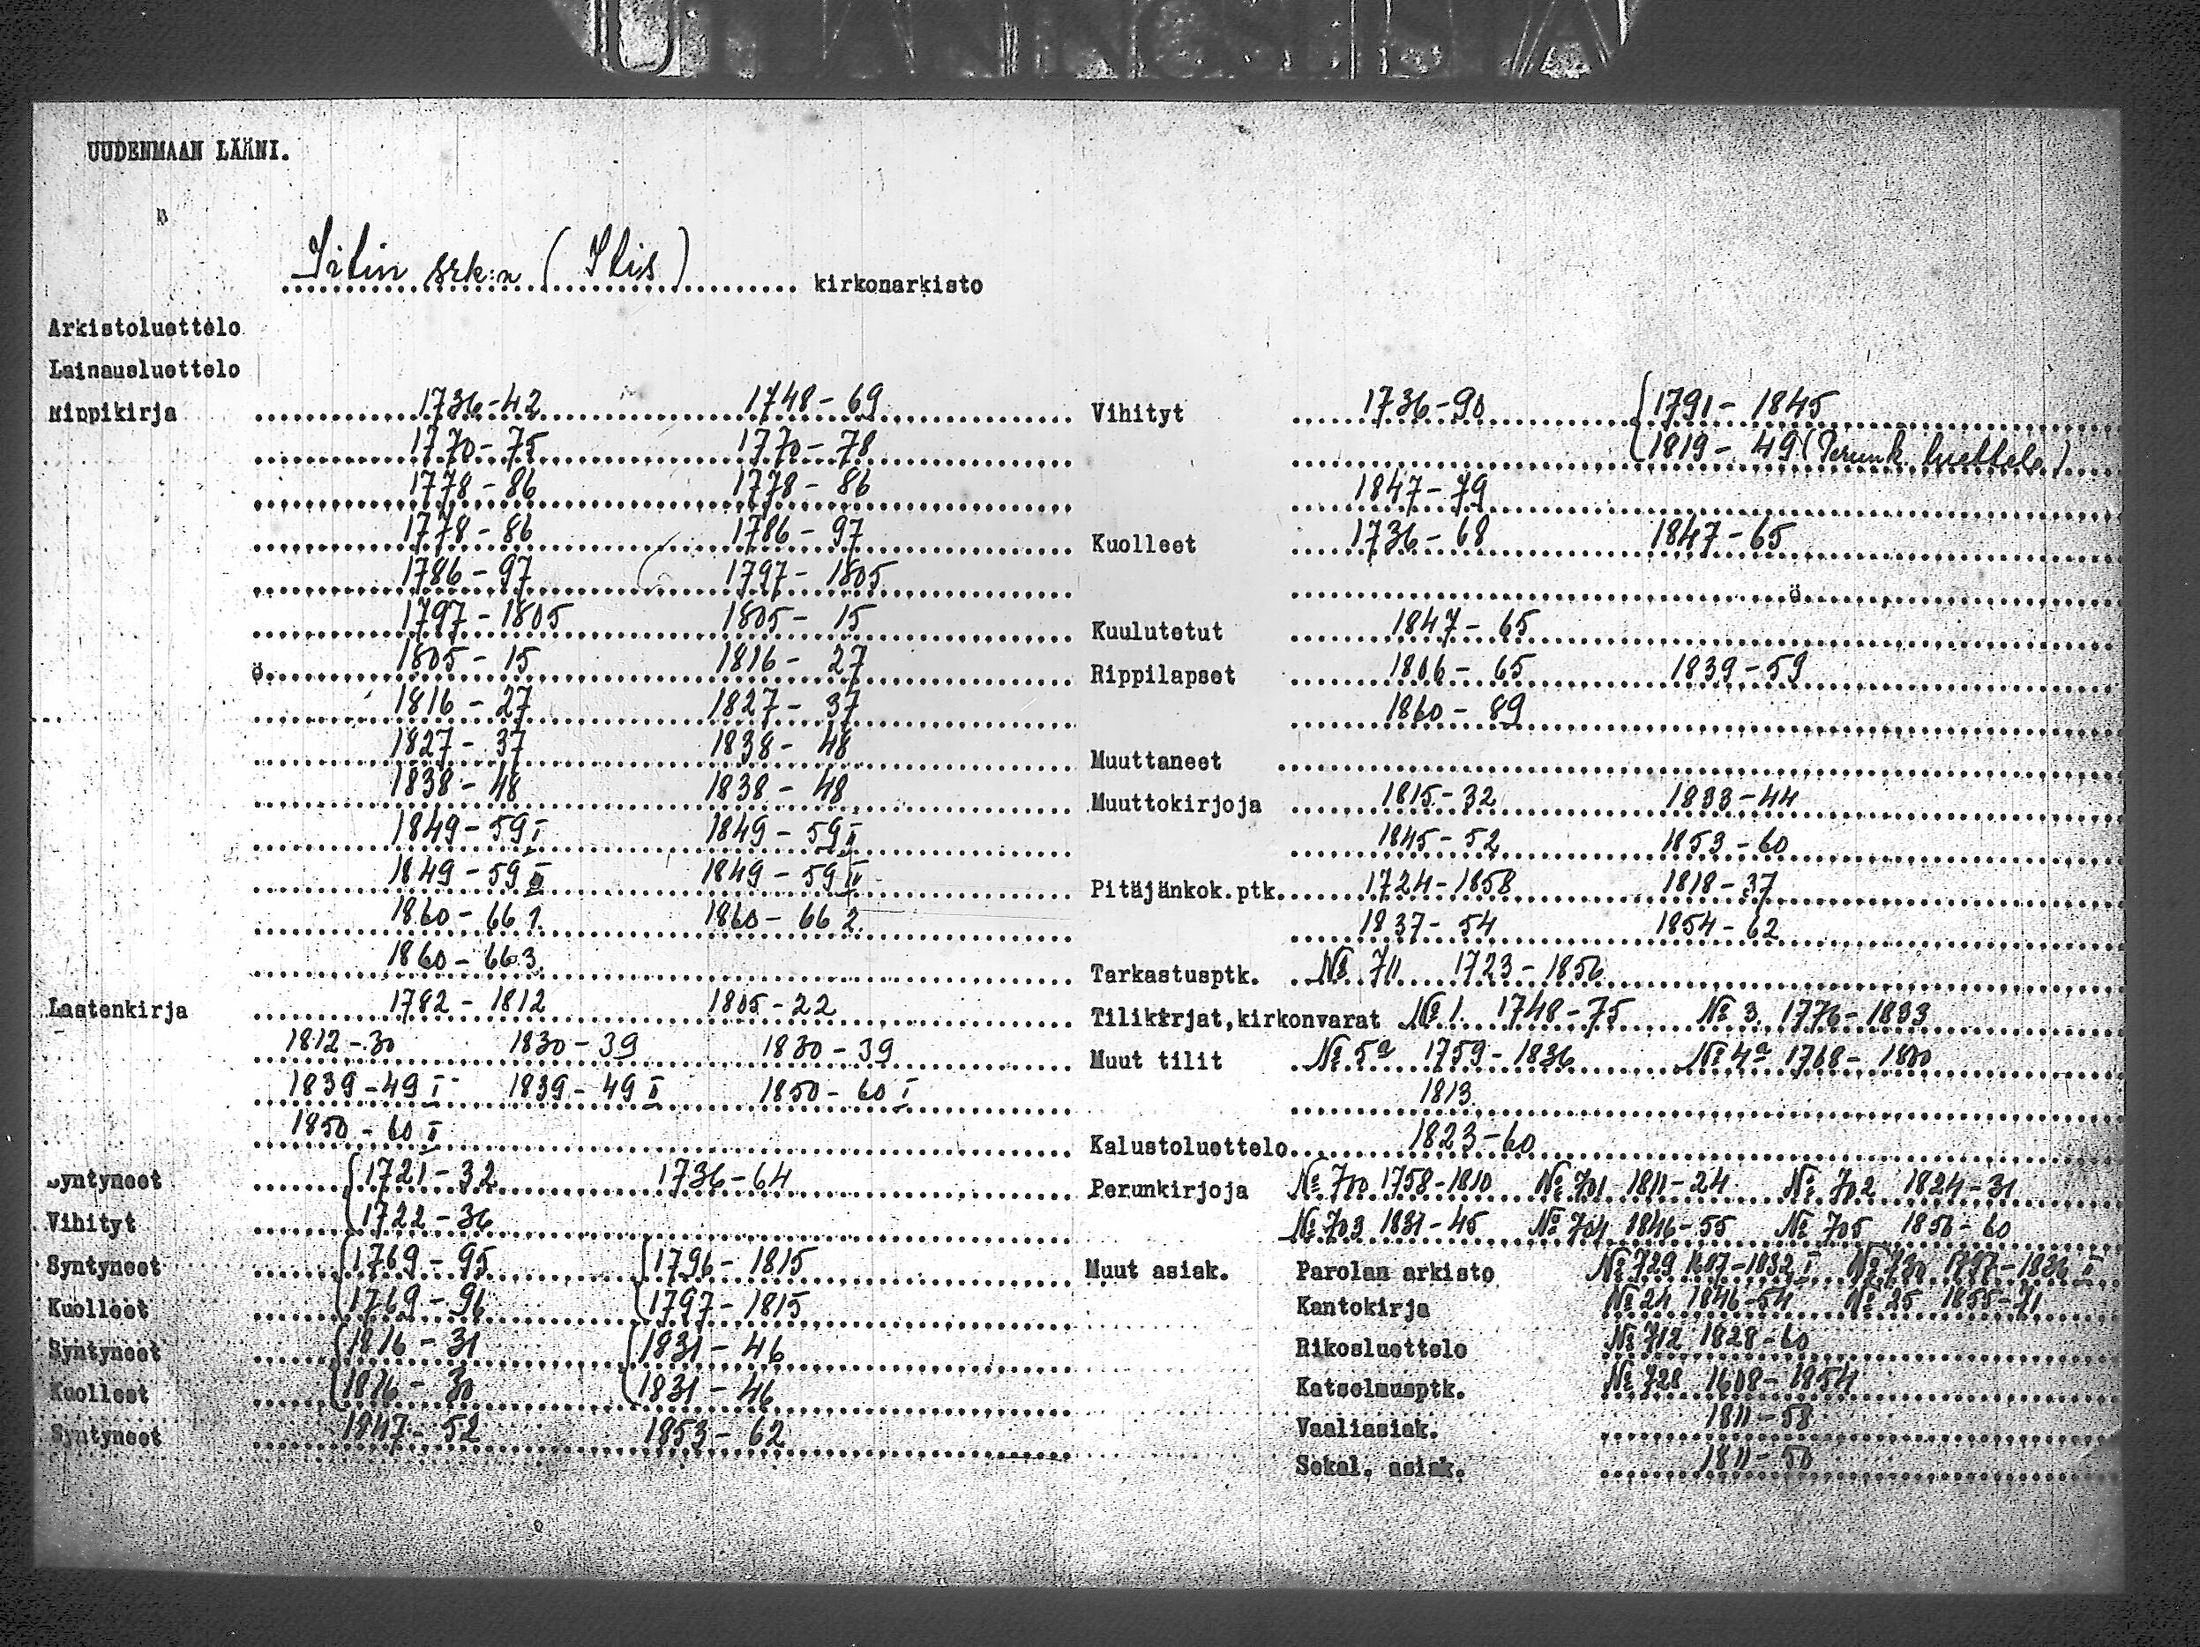 UUDENMAAN LÄÄNI.
Iitin srk:n (Itis) kirkonarkisto
Arkistoluettelo
Lainausluettelo
Rippikirja 1736-42 1748-69
1770-75 1770-78
1778-86 1778-86
1778-86 1786-97
1786-97 1797-1805
1797-1805 1805-15
ö 1805-15 1816-27
1816-27 1827-37
1827-37 1838-48
1838-48 1838-48
1849-59 I 1849-59 II
1849-59 1849-59 II
1860-66 1. 1860-66 2.
1860-66 3.
Lastenkirja 1782-1812 1805-22
1812-30 1830-39 1830-39
1839-49 I 1839-49 II 1850-60 I
1850-60 II
Syntyneet 1721-32 1736-64
Vihityt 1722-36
Syntyneet 1769-95 1796-1815
Kuolleet 1769-96 1797-1815
Syntyneet 1816-31 1831-46
Kuolleet 1816-30 1831-46
Syntyneet 1847-52 1853-62
Vihityt 1736-90 1791-1845
1819-49 (Perunk. luettelo)
1847-79
Kuolleet 1736-68 1847-65
ö
Kuulutetut 1847-65
Rippilapset 1806-65 1839-59
1860-89
Muuttaneet
Muuttokirjoja 1815-32 1833-44
1845-52 1853-60
Pitäjänkok.ptk. 1724-1858 1818-37
1837-54 1854-62
Tarkastusptk. № 711 1723-1856
Tilikirjat,kirkonvarat № 1. 1748-75 № 3. 1776-1833
Muut tilit № 5a 1759-1836 № 4a 1768-1800
1813
Kalustoluettelo 1823-60
Perunkirjoja № 700 1758-1810 № 701 1811-24 № 702 1824-31
№ 703 1831-45 № 704 1846-55 № 705 1856-60
Muut asiak. Parolan arkisto № 729 -1832 I № 730 II
Kantokirja № 24 1846-54 № 25 1855-71
Rikosluettelo № 712 1828-60
Katselmusptk. № 728 1608-1854
Vaaliasiak. 1811-58
Sekal. asiak. 1811-50